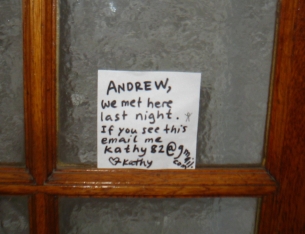 ANDREW,
we met here
last night.
If you see this
email me
kathy82@gm
♡ Kathy